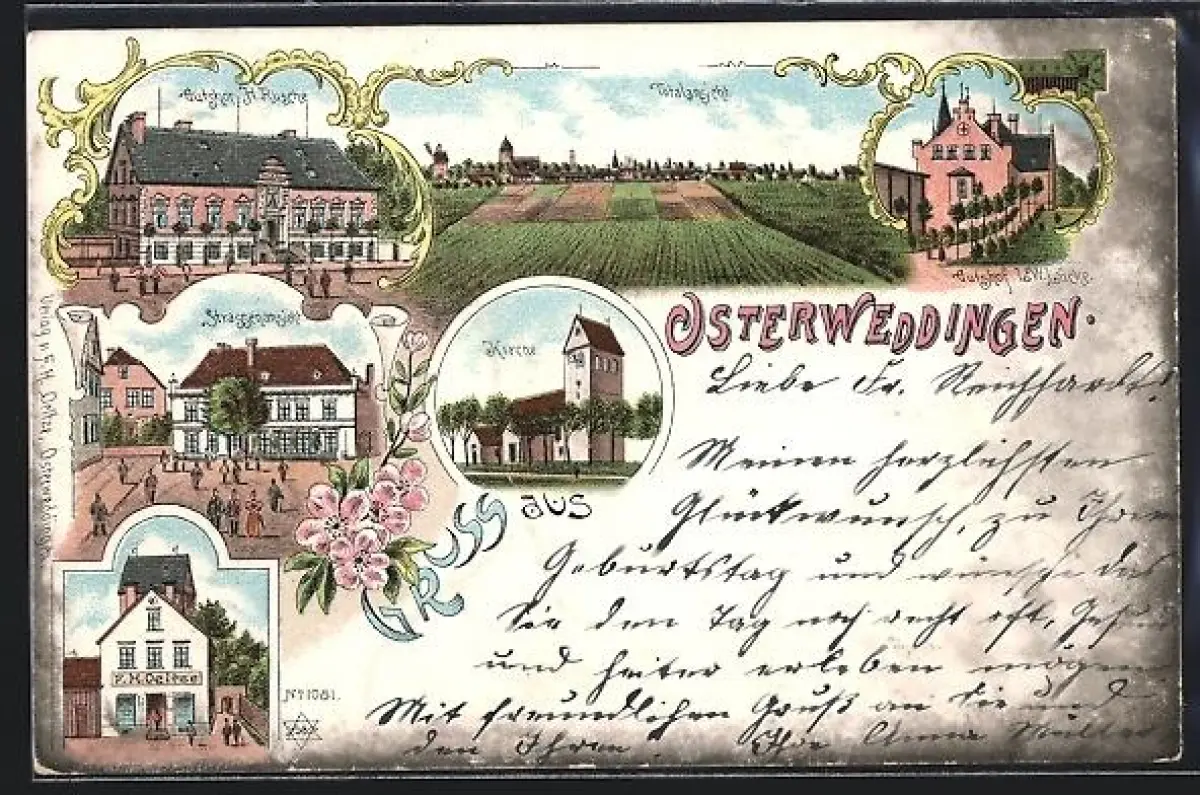 Gutshof Fr. Rusche
Totalansicht
Gutshof
Strassenansicht
Kirche
OSTERWEDDINGEN.
GRUSS
aus
Verlag v. F. H. Osterweddingen
F. H.
No 1081.
Liebe Fr. Reichhardt!
Meinen herzlichsten
Glückwunsch, zu Ihrem
Geburtstag und wünsche das
Sie den Tag noch recht oft, Gesund
und heiter erleben mögen
Mit freundlichen Gruß an Sie und
den Ihren. Ihre Anna Müller